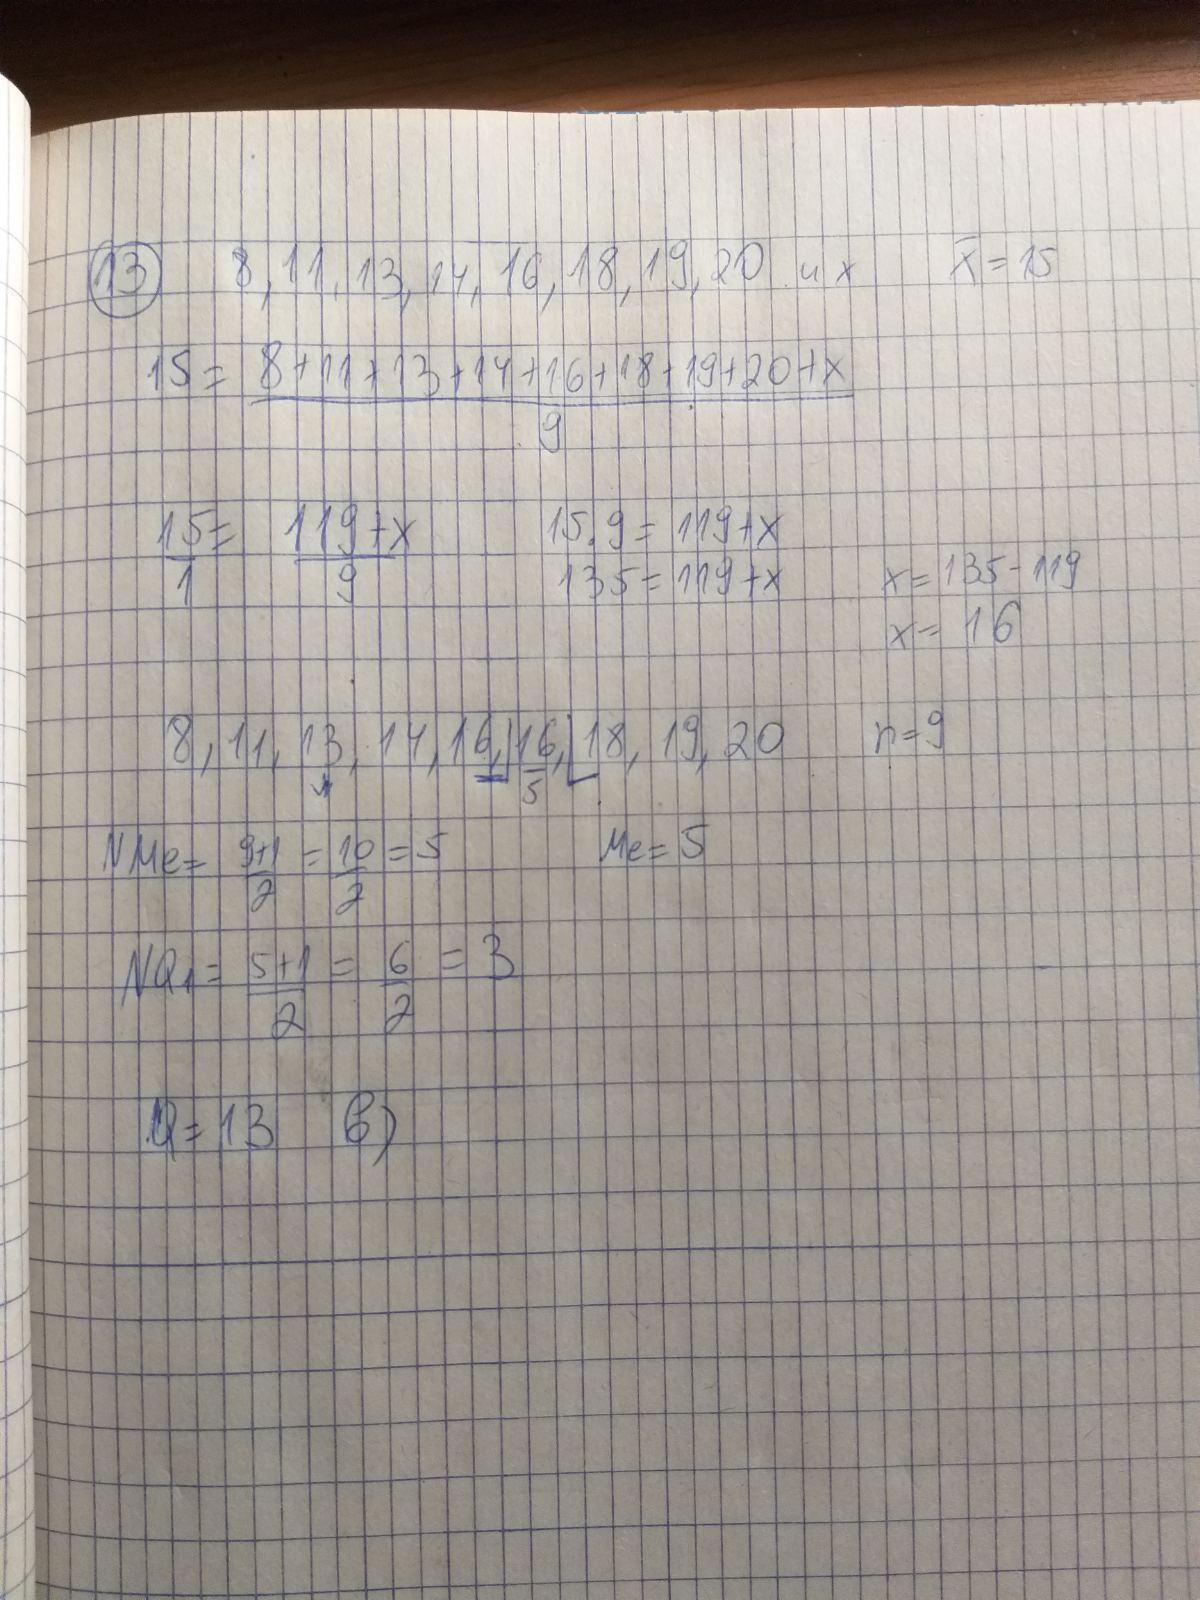 13 8, 11, 13, 14, 16, 18, 19, 20 и x x̄ = 15
15 = (8+11+13+14+16+18+19+20+x)/9
15/1 = (119+x)/9 15.9 = 119+x
135 = 119+x x = 135-119
x = 16
8, 11, 13, 14, 16, 16, 18, 19, 20 n=9
5
NMe = (9+1)/2 = 10/2 = 5 Me = 5
NQ1 = (5+1)/2 = 6/2 = 3
Q = 13 в)